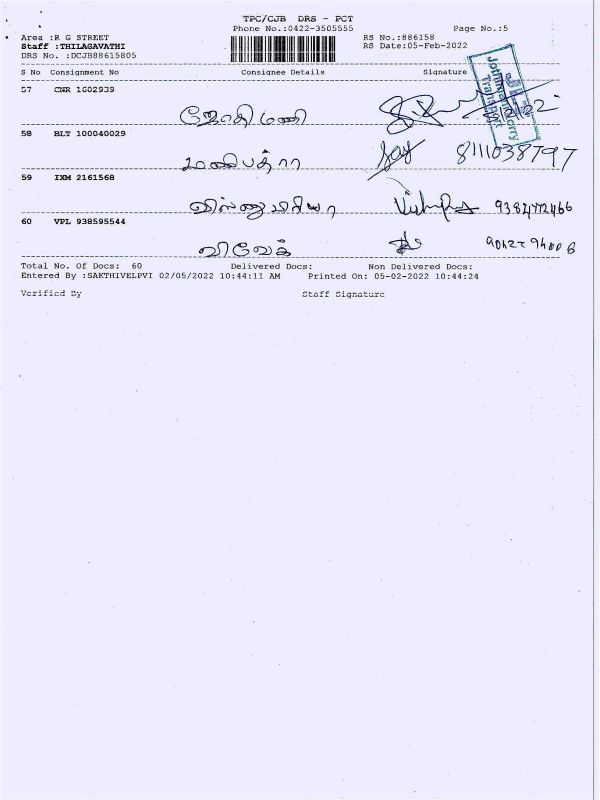 TPC/CJB DRS - PCT
Phone No.:0422-3505555
Page No.:5
Area :R G STREET
RS No.:886158
Staff :THILAGAVATHI
RS Date:05-Feb-2022
DRS No. :DCJB88615805
S No Consignment No Consignee Details Signature
57 CNR 1602939
ஜோதிமணி
Jothimani Lorry
Transport
58 BLT 100040029
8111038797
59 IXM 2161568
60 VPL 938595544
விவேக்
Total No. Of Docs: 60 Delivered Docs: Non Delivered Docs:
Entered By :SAKTHIVELPVI 02/05/2022 10:44:11 AM Printed On: 05-02-2022 10:44:24
Verified By Staff Signature